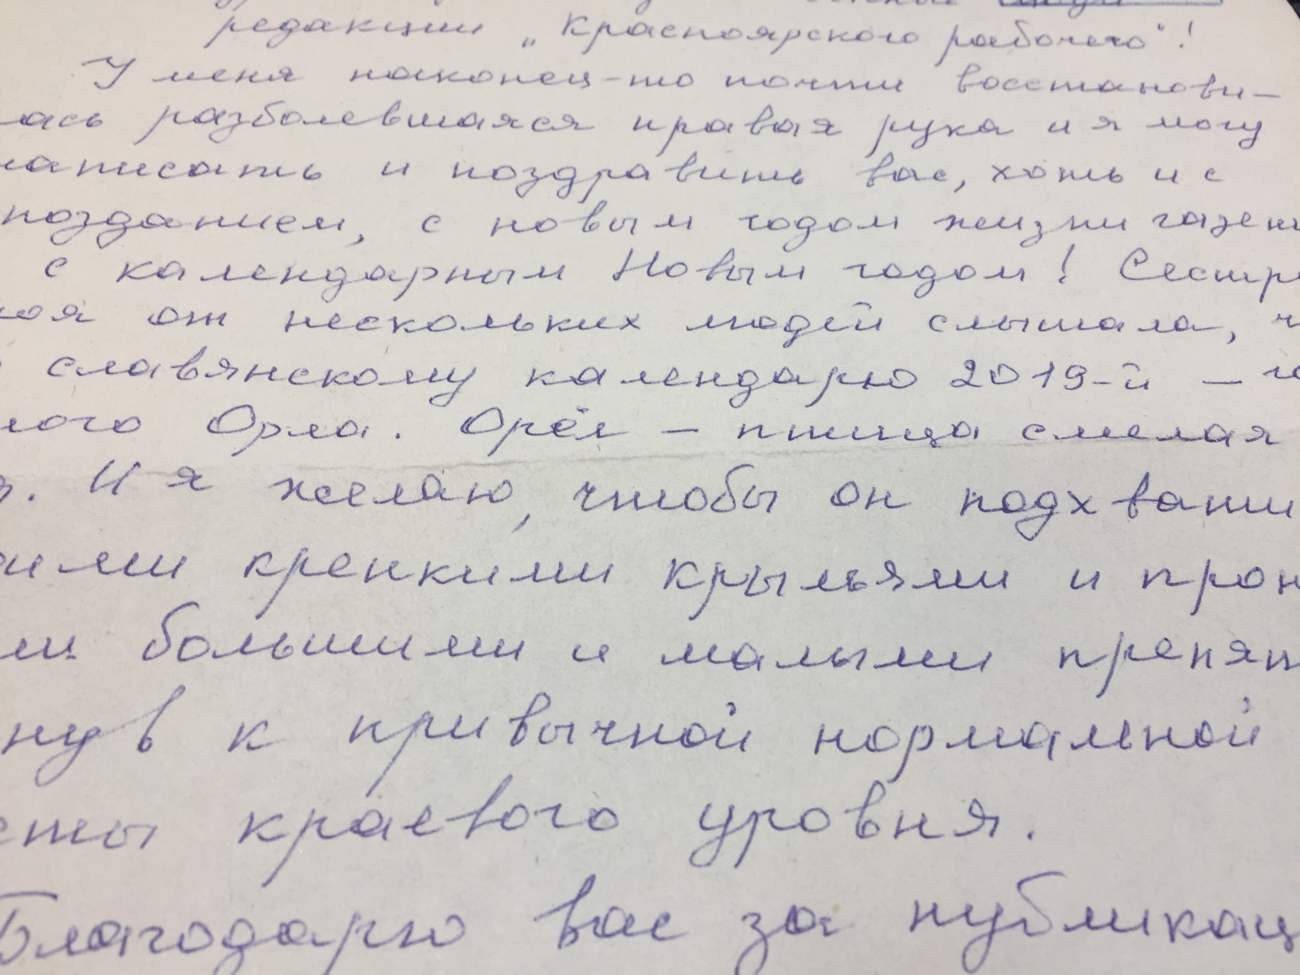 редакции „Красноярского рабочего“!
У меня наконец-то почти восстанови-
лась разболевшаяся правая рука и я могу
написать и поздравить вас, хоть и с
позданием, с новым годом жизни газет
с календарным Новым годом! Сестр
моя от нескольких людей слышала, ч
славянскому календарю 2019-й – го
лого Орла. Орёл – птица смелая
я. И я желаю, чтобы он подхвати
оими крепкими крыльями и прон
ми большими и малыми препят
нув к привычной нормальной
еты краевого уровня.
Благодарю вас за публикац